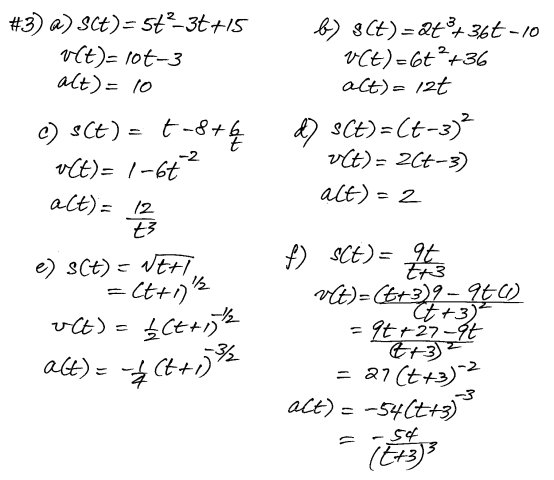 #3) a) s(t) = 5t² - 3t + 15
v(t) = 10t - 3
a(t) = 10
b) s(t) = 2t³ + 36t - 10
v(t) = 6t² + 36
a(t) = 12t
c) s(t) = t - 8 + 6/t
v(t) = 1 - 6t⁻²
a(t) = 12/t³
d) s(t) = (t-3)²
v(t) = 2(t-3)
a(t) = 2
e) s(t) = √(t+1)
= (t+1)^(1/2)
v(t) = 1/2 (t+1)^(-1/2)
a(t) = -1/4 (t+1)^(-3/2)
f) s(t) = 9t/(t+3)
v(t) = ((t+3)9 - 9t(1))/(t+3)²
= (9t + 27 - 9t)/(t+3)²
= 27(t+3)⁻²
a(t) = -54(t+3)⁻³
= -54/(t+3)³